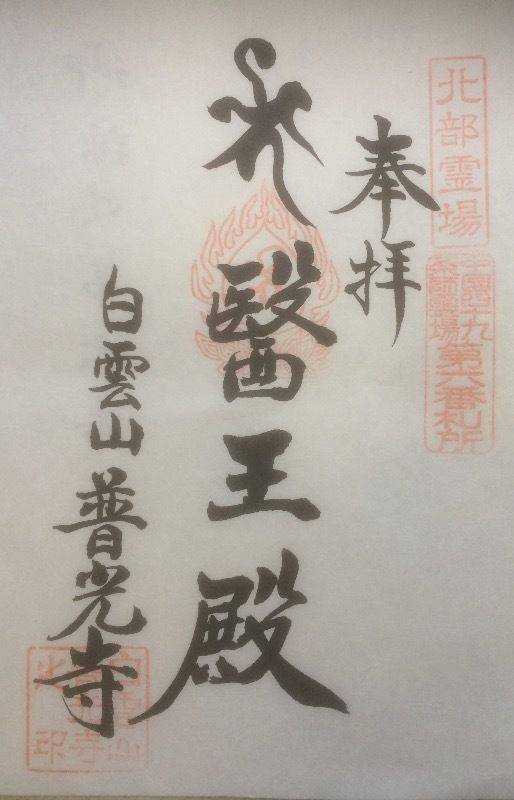 北部霊場
四十九
霊場
第 番札所
奉拝
醫王殿
白雲山 普光寺